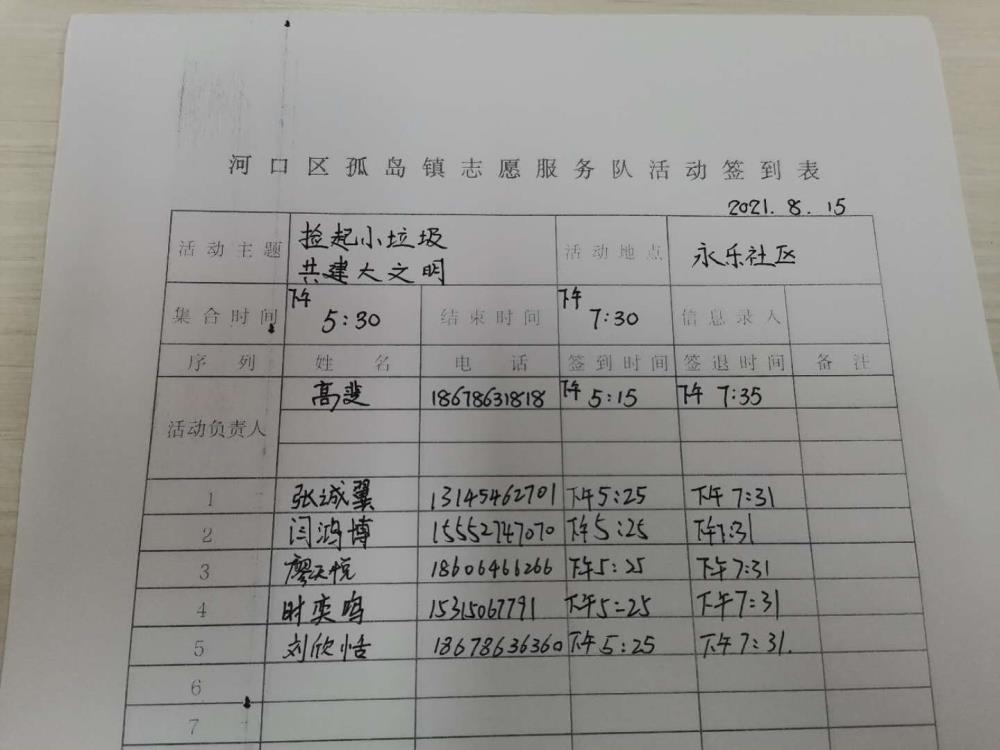 河口区孤岛镇志愿服务队活动签到表
2021.8.15
活动主题 捡起小垃圾 活动地点 永乐社区
共建大文明
集合时间 下午5:30 结束时间 下午7:30 信息录入
序列 姓名 电话 签到时间 签退时间 备注
高斐 18678631818 下午5:15 下午7:35
活动负责人
1 张诚翼 13145462701 下午5:25 下午7:31
2 闫鸿博 15552747070 下午5:25 下午7:31
3 廖天悦 18606466266 下午5:25 下午7:31
4 时奕鸣 15315067791 下午5:25 下午7:31
5 刘欣恬 18678636360 下午5:25 下午7:31.
6
7